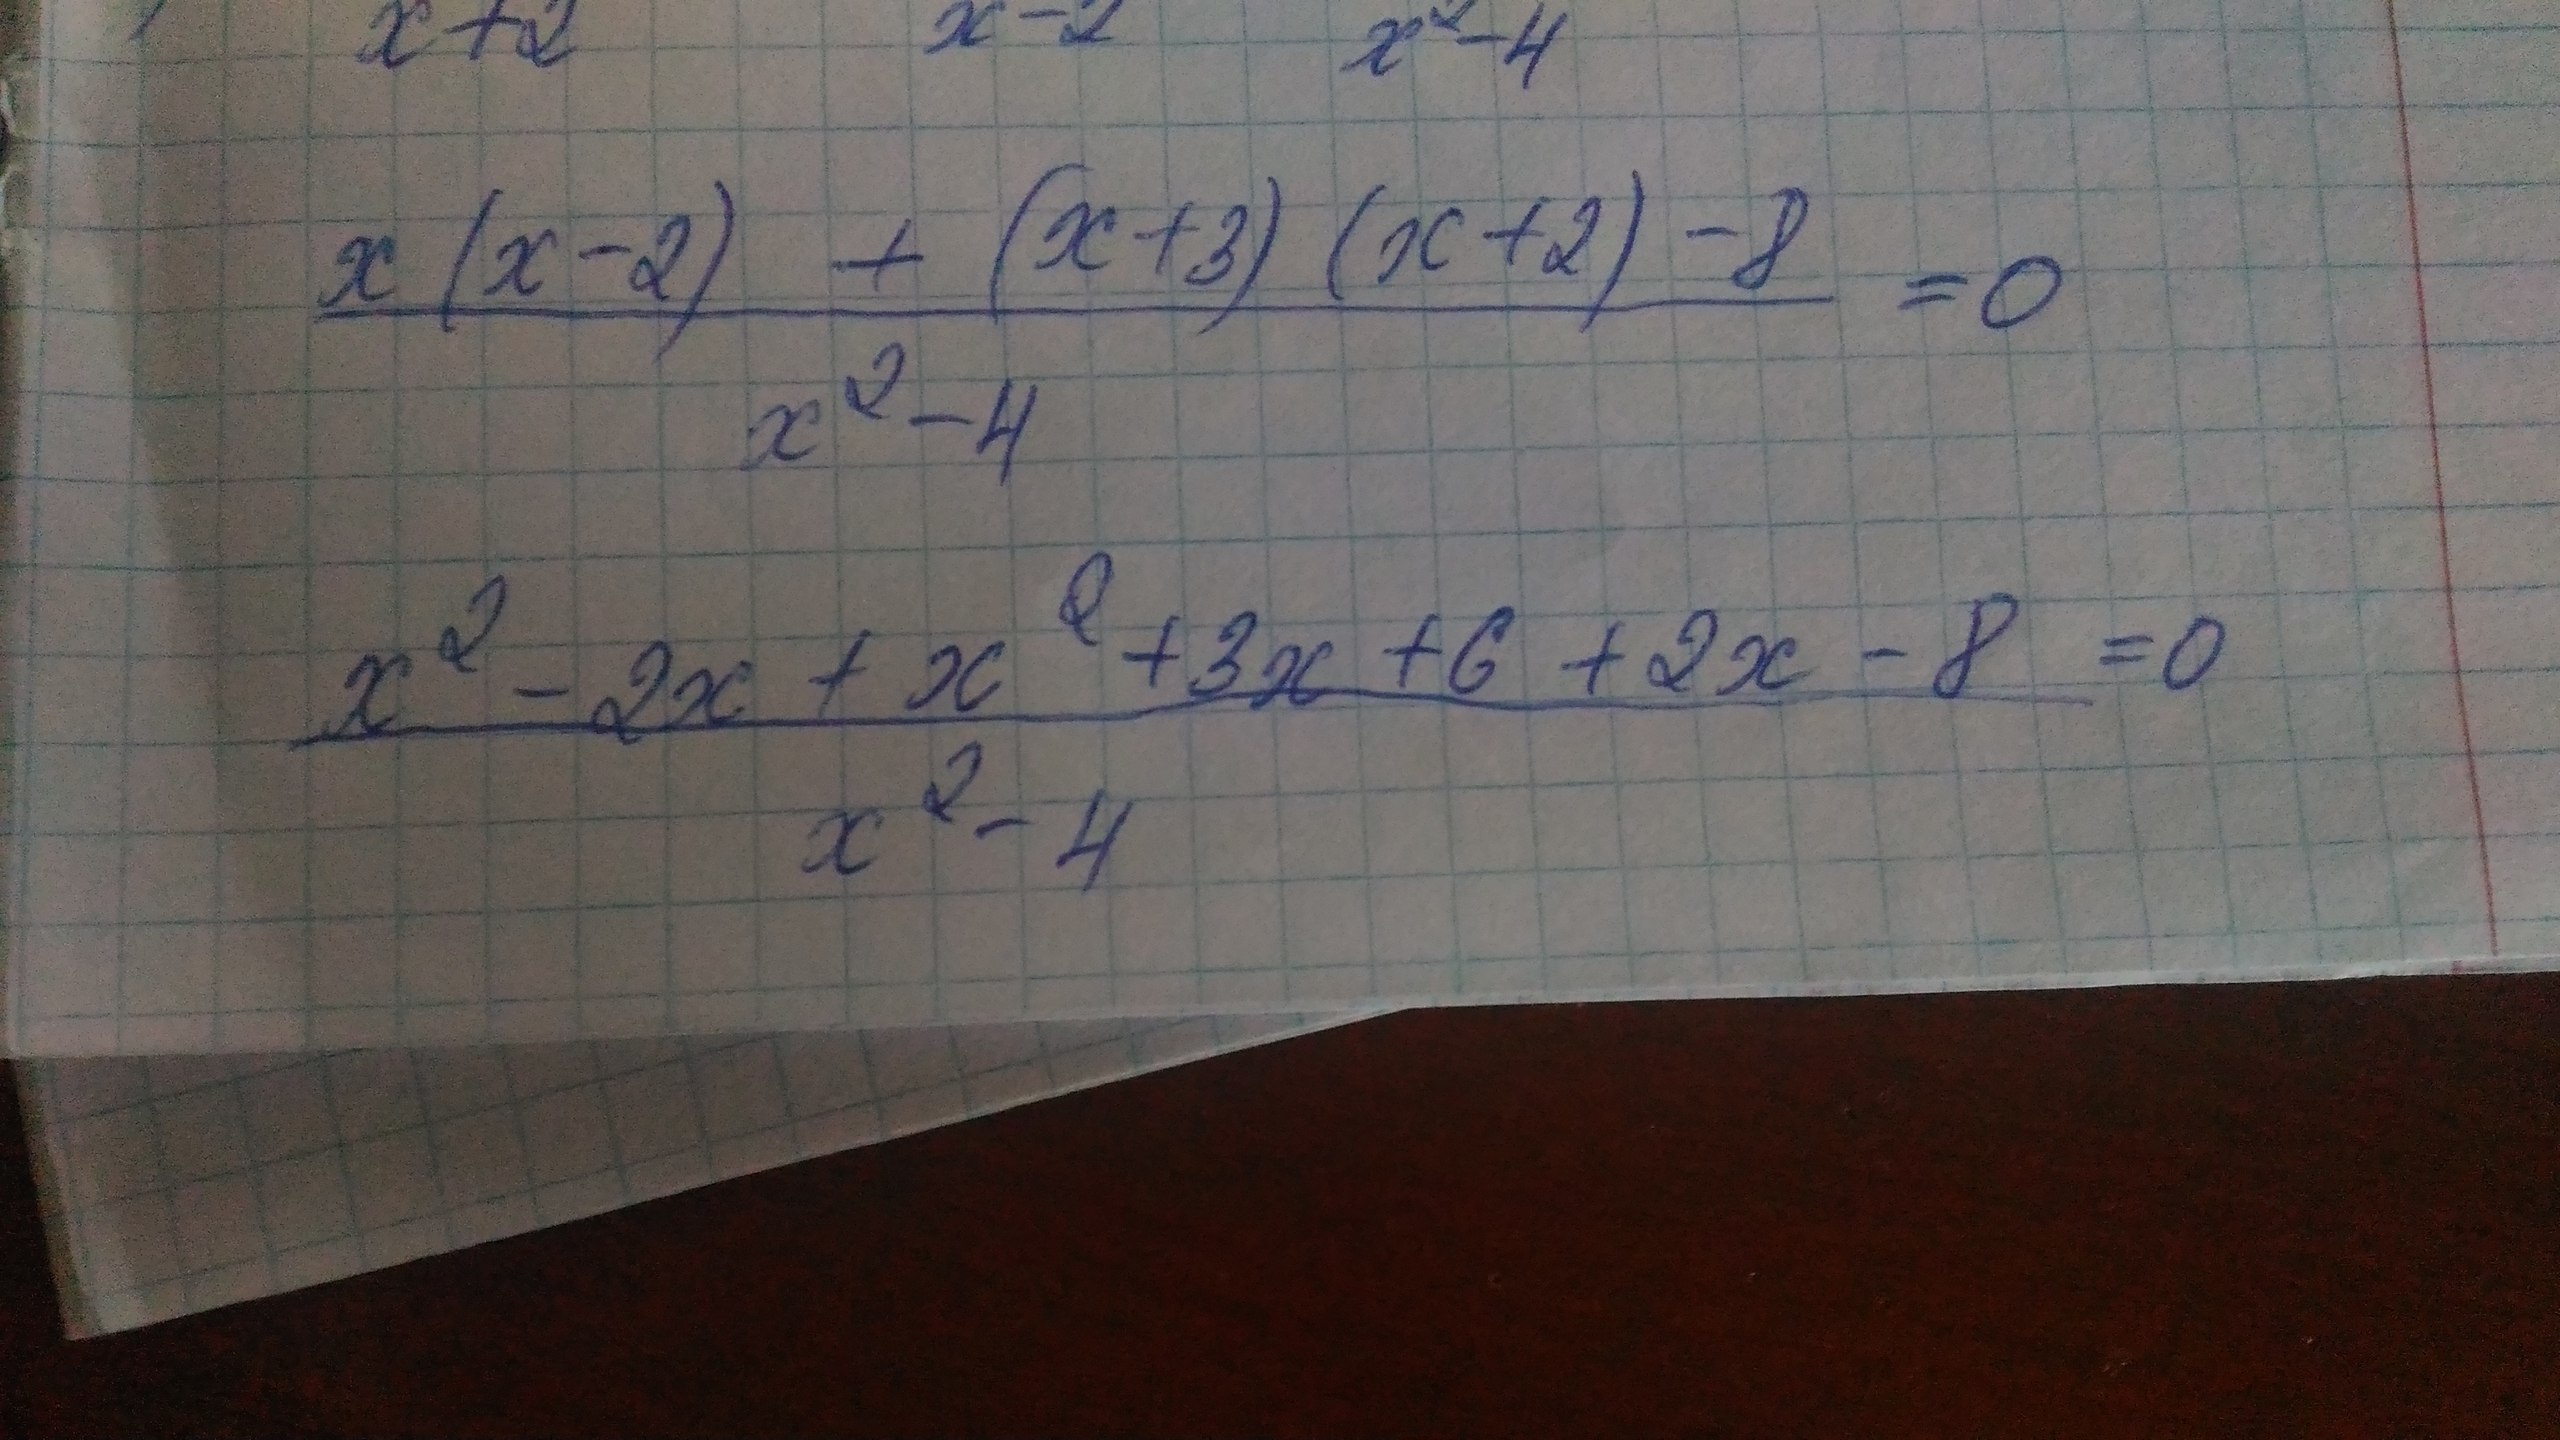 x+2 x-2 x²-4
x(x-2) + (x+3)(x+2)-8 =0
x²-4
x²-2x+x²+3x+6+2x-8 =0
x²-4